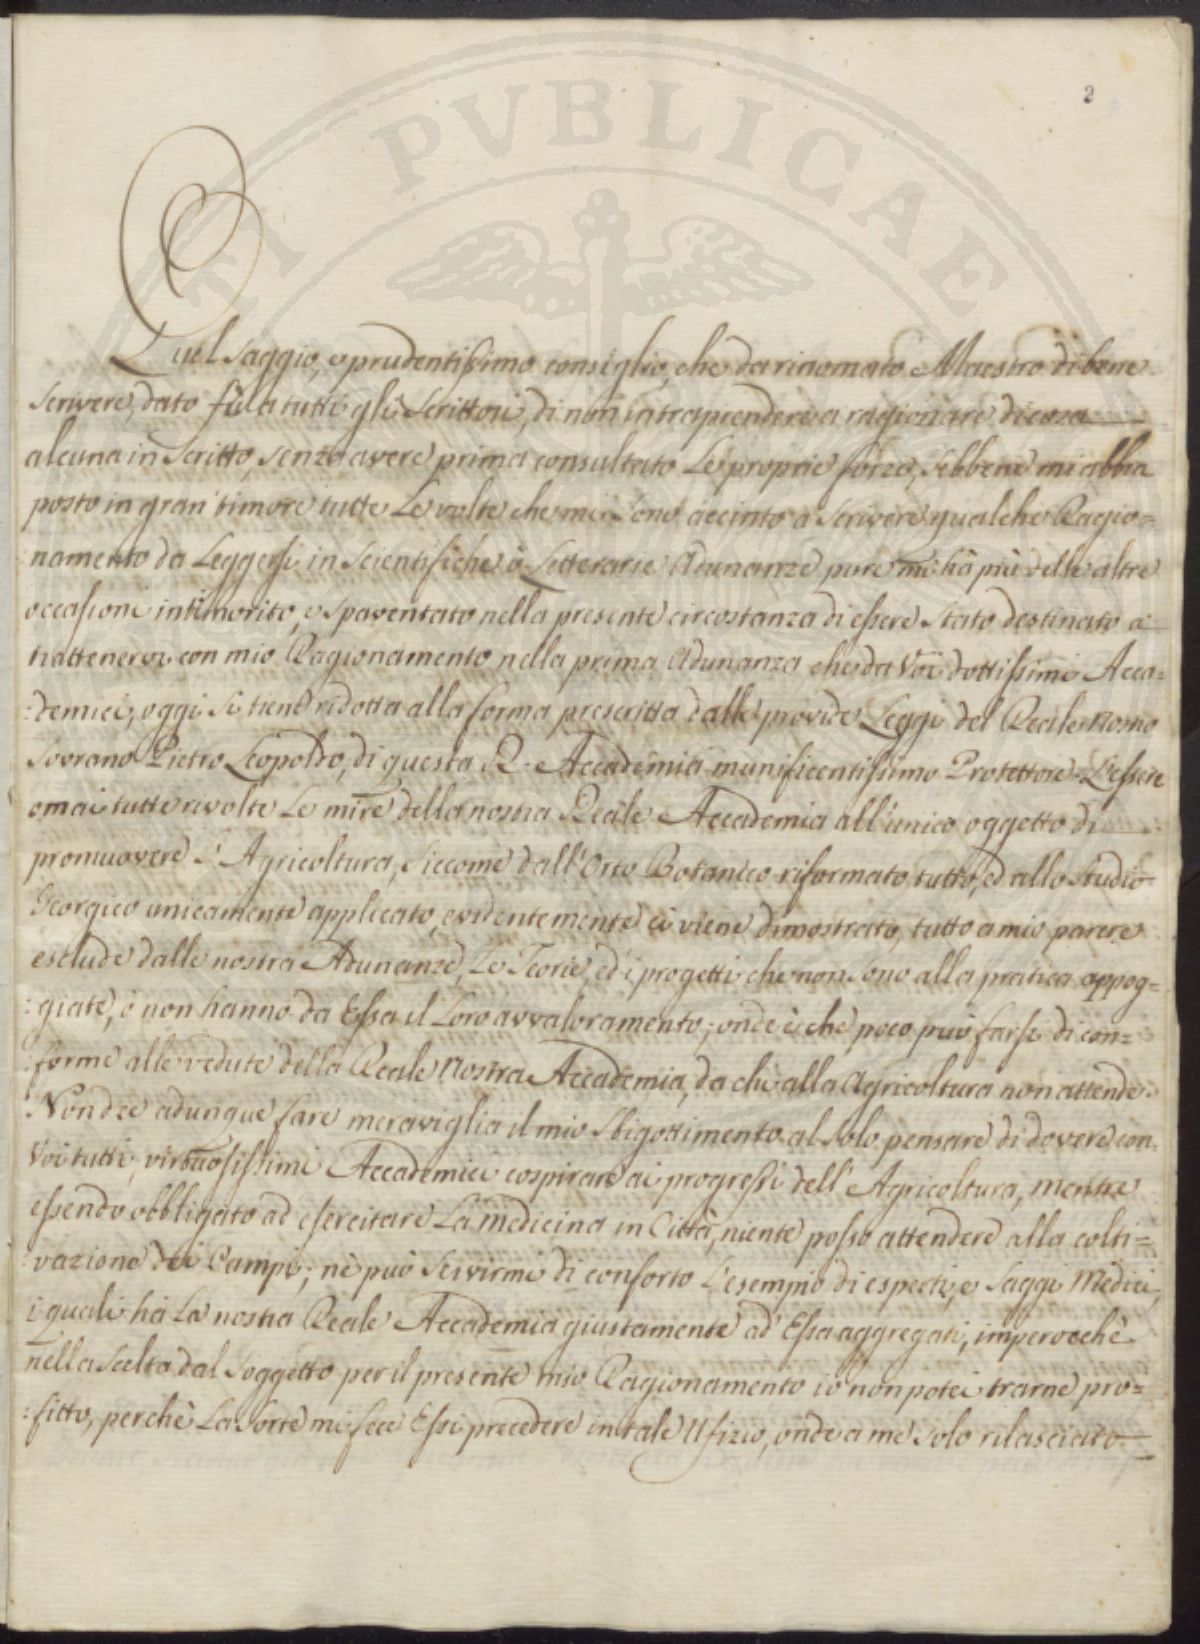 2
Quel saggio, e prudentissimo consiglio, che da rinomato Maestro di bene
scrivere, dato fù a tutti gli Scrittori, di non intraprendere a ragionare di cosa
alcuna in scritto, senza avere prima consultato Le proprie forze, sebbene mi abbia
posto in gran timore tutte Le volte che mi sono accinto a scrivere qualche Ragio=
namento da Leggersi in Scientifiche ò Letterarie Adunanze pure mi hà più delle altre
occasioni intimorito, e spaventato nella presente circostanza di essere stato destinato a
trattenervi con mio Ragionamento nella prima Adunanza che da Voi dottissimi Acca=
:demici, oggi si tiene ridotta alla forma prescritta dalle provide Leggi del Reale nostro
Sovrano Pietro Leopoldo, di questa R. Accademia munificentissimo Protettore. L'essere
omai tutte rivolte Le mire della nostra Reale Accademia all'unico oggetto di
promuovere L'Agricoltura, siccome dall'Orto Botanico riformato tutto, ed allo studio
Georgico unicamente applicato, evidentemente ci viene dimostrato, tutto a mio parere
esclude dalle nostre Adunanze, Le Teorie, ed i progetti che non sono alla pratica appog=
:giate, ò non hanno da Essa il Loro avvaloramento; onde è che poco può farsi di con=
:forme alle vedute della Reale nostra Accademia, da chi alla Agricoltura non attende.
Non dee adunque fare meraviglia il mio sbigottimento al solo pensare di dovere con
Voi tutti, virtuosissimi Accademici cospirare ai progressi dell'Agricoltura, mentre
essendo obbligato ad esercitare La medicina in Città, niente posso attendere alla colti=
:vazione dei Campi; nè può servirmi di conforto L'esempio di esperti, e saggi Medici,
i quali hà La nostra Reale Accademia giustamente ad Essa aggregati, imperocchè
nella scelta dal soggetto per il presente mio Ragionamento io non potei trarne pro=
:fitto, perchè La sorte mi fece Essi precedere in tale Ufizio, onde a me solo rilasciato
PUBLICAE